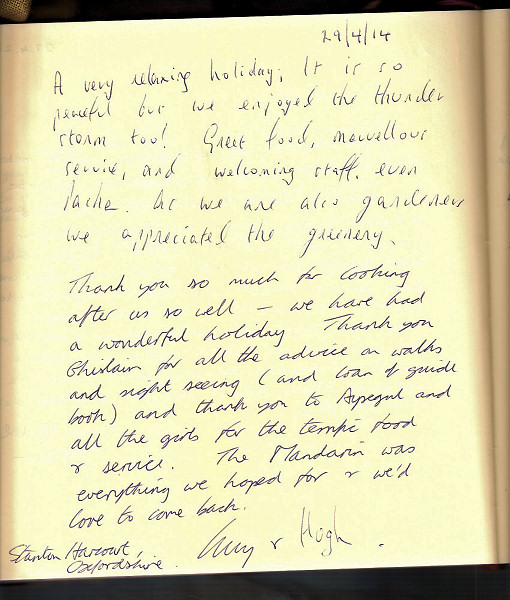 29/4/14
A very relaxing holiday; It is so
peaceful but we enjoyed the thunder
storm too! Great food, marvellous
service, and welcoming staff, even
As we are also gardeners
we appreciated the greenery.
Thank you so much for looking
after us so well – we have had
a wonderful holiday Thank you
Ghislain for all the advice on walks
and sight seeing (and loan of guide
book) and thank you to Aysegul and
all the girls for the terrific food
& service. The Mandarin was
everything we hoped for & we'd
love to come back.
& Hugh.
Stanton Harcourt,
Oxfordshire.